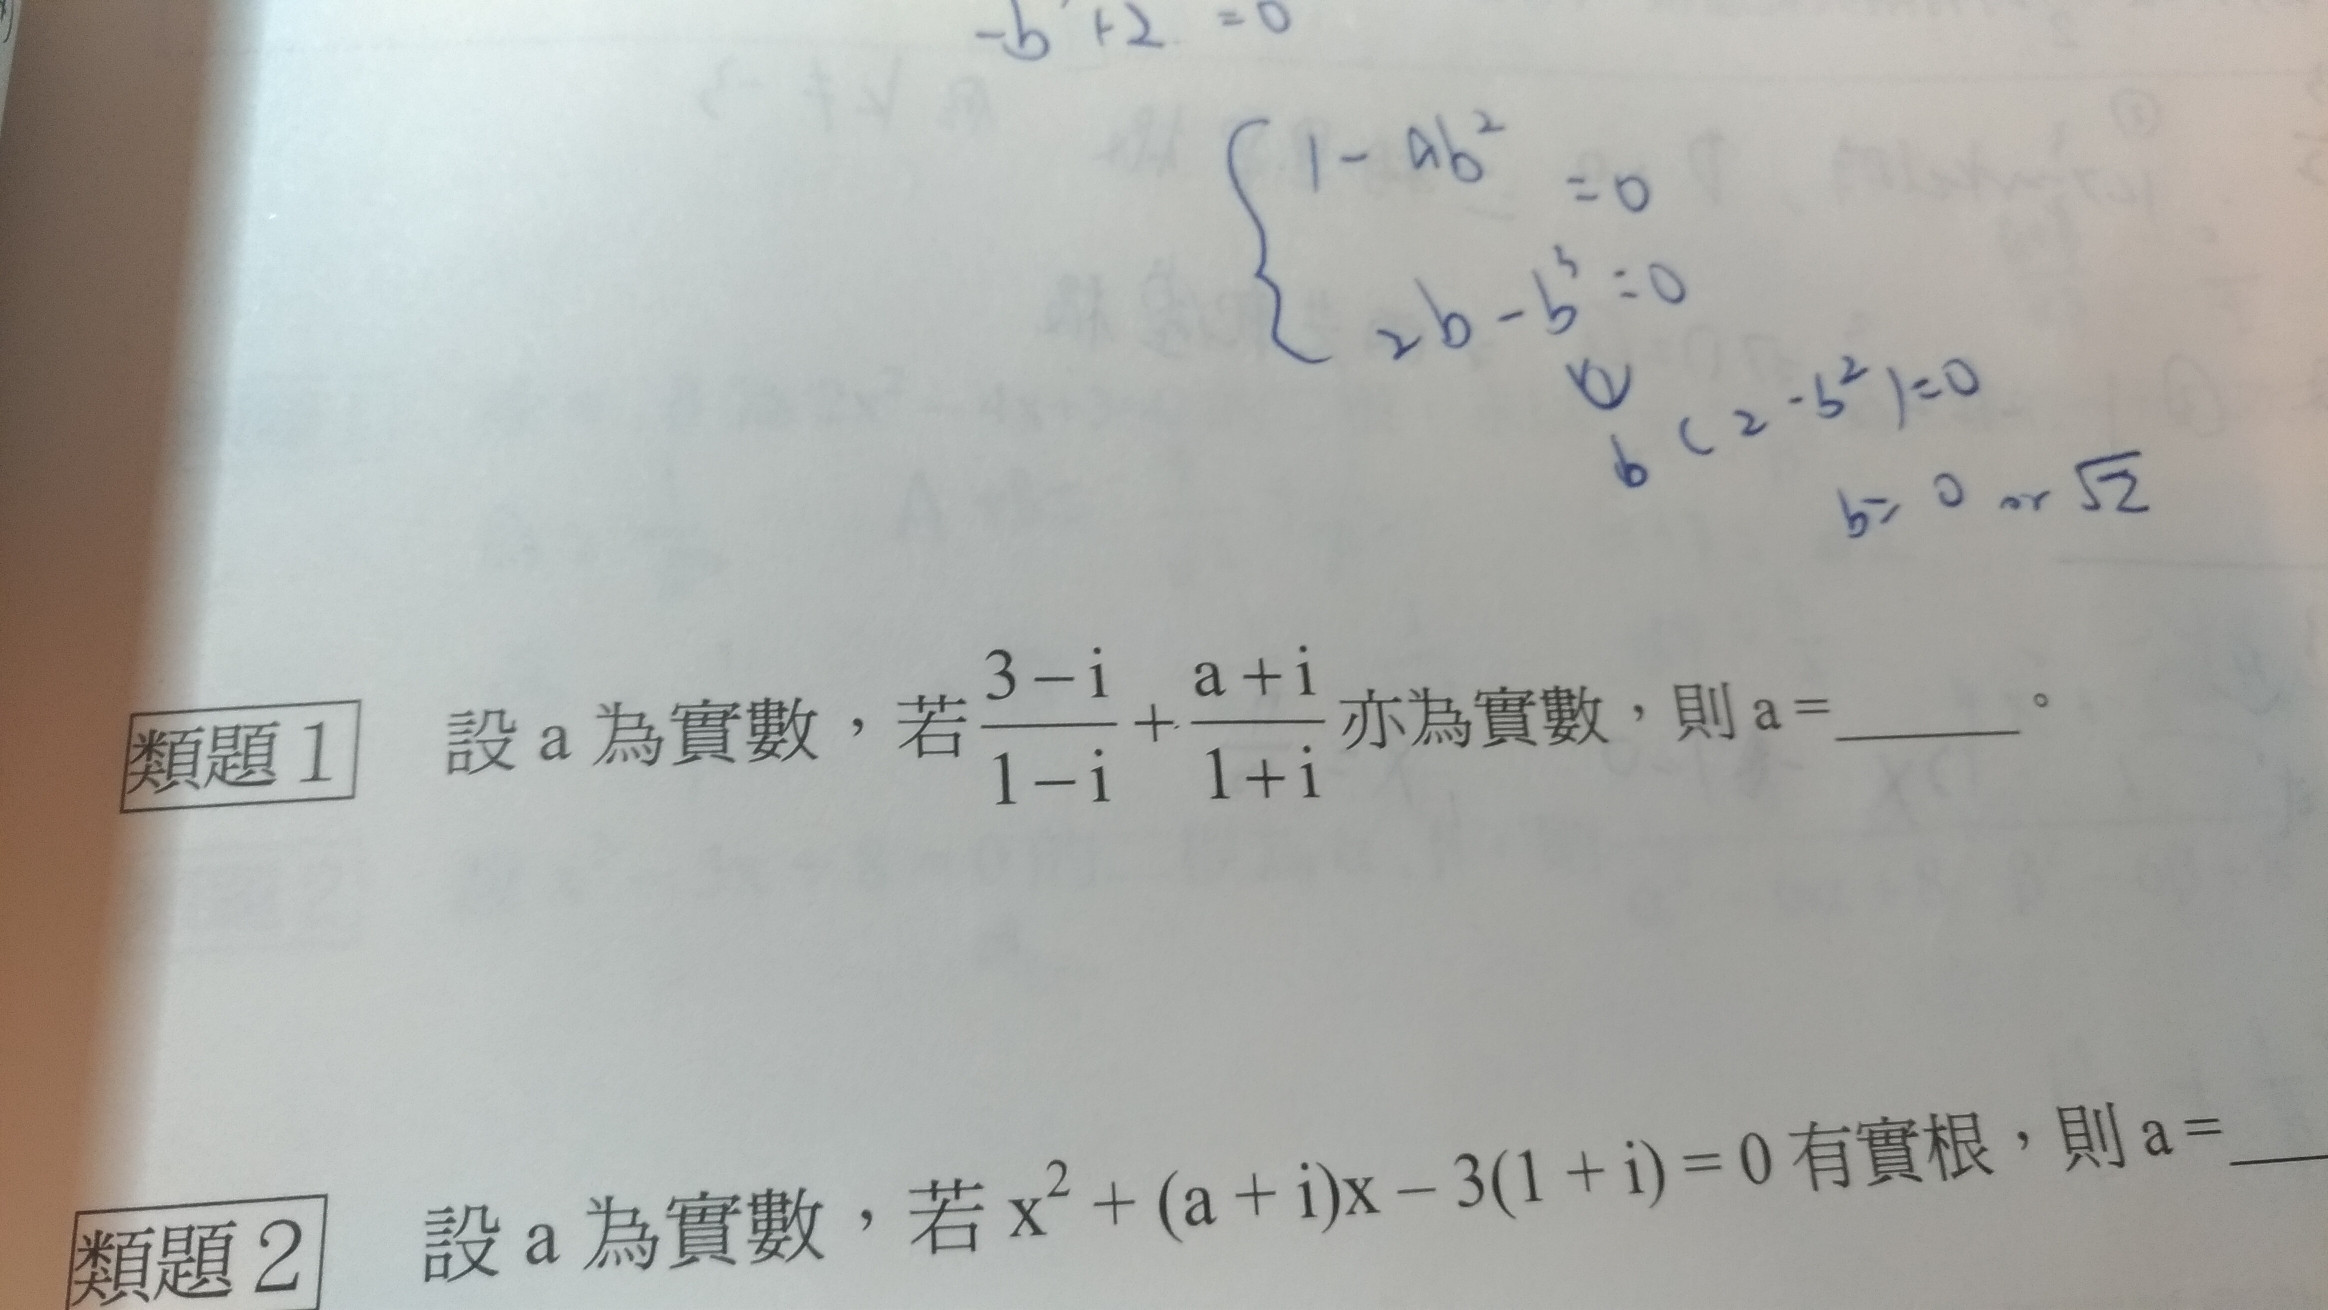 -b +2 =0
1 - ab² =0
2b - b³ =0
b (2 - b²) =0
b= 0 or √2
類題1 設 a 為實數,若 (3 - i)/(1 - i) + (a + i)/(1 + i) 亦為實數,則 a = ______。
類題2 設 a 為實數,若 x² + (a + i)x - 3(1 + i) = 0 有實根,則 a = ___